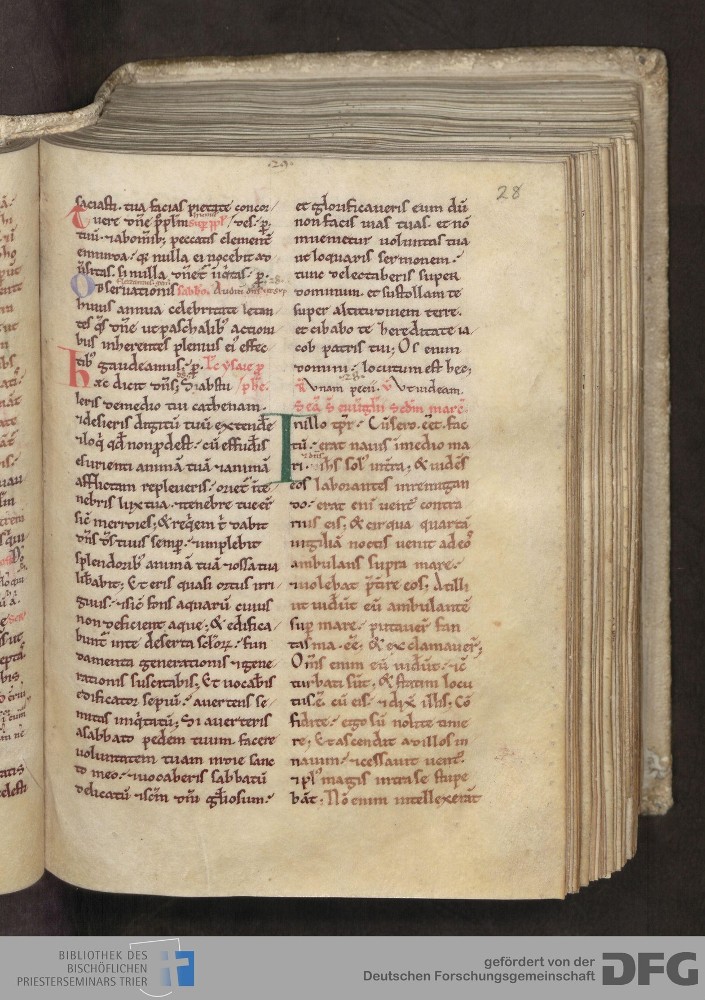 28
saciasti. tua facias pietate concor
Tuere dn̄e pp̄lm sup̱ ppl̄ / Vel. p̱.
tuū. ⁊ ab om̄ib; peccatis clementē
emunda. q̢ nulla ei nocebit ad
ūsitas. si nulla dn̄et̄ iniq̇tas. p̱.
Observationis sabbō.
huius annua celebritate letan
tes q̄s dn̄e ut paschalib; action
bus inherentes plenius ei effec
tib; gaudeamus. p̱. Lc̄ ysaie p̱
Hec dicit dn̄s; Si abstu / phē.
leris de medio tui cathenam.
⁊ desieris digitū tuū extendē
⁊ loq̇ qd̄ non pdest. cū effudīs
esurienti animā tuā ⁊ animā
afflictam repleveris. oriet̄ ite
nebris lux tua. ⁊ tenebre tue er̄
sic̄ meridies; & req̇em t̄ dabit
dn̄s d̄s tuus semp̱. ⁊ implebit
splendorib; animā tuā ⁊ ossa tua
lib̄abit; Et eris quasi ortus irri
guus. ⁊ sic̄ fons aquarū cuius
non deficient aque; & edifica
bunt̄ in te deserta sc̄loꝝ. fun
damenta generationis ⁊ gene
rationis suscitabis, Et vocab̄is
edificator sepiū. avertens se
mitas iniq̇tatū; Si averteris
a sabbato pedem tuum. facere
voluntatem tuam in die sanc
to meo. ⁊ vocaberis sabbatū
delicatū ⁊ sc̄m dn̄i gl̄iosum.
et glorificaveris eum dū
non facis vias tuas. et nō
invenietur voluntas tua
ut loquaris sermonem.
tunc delectaberis super
dominum. et sustollam te
super altitudinem terre.
et cibabo te hereditate ia
cob patris tui; Os enim
domini locutum est hec;
Unam pecii. Ut videam.
Seq̄. S. evvglii. Sedm̄ marc̄.
In illo tp̄r. Cū sero. eēt fac
tū. erat navis ī medio ma
ri. ⁊ ih̄s sol; in t̄ra, & vidēs
eos laborantes in remigan
do. erat eni vent; contra
rius eis, & circa quartā
vigiliā noctis venit ad eos
ambulans supra mare.
⁊ volebat p̄tire eos; At illi
ut vidūt eū ambulantē
sup̱ mare. putaver̄ fan
tasma. eē; & exclamaver̄;
Om̄s enim eū vidūt. ⁊ c̄
turbati sūt, & statim locu
tus ē cū eis. ⁊ dix̄ illis, Cō
fidite. ego sū nolite time
re; Et ascendit ad illos in
navim. ⁊ cessavit vent;
⁊ pl; magis intra se stupe
bāt; Nō enim intellexerāt
BIBLIOTHEK DES
BISCHÖFLICHEN
PRIESTERSEMINARS TRIER
gefördert von der
Deutschen Forschungsgemeinschaft
DFG